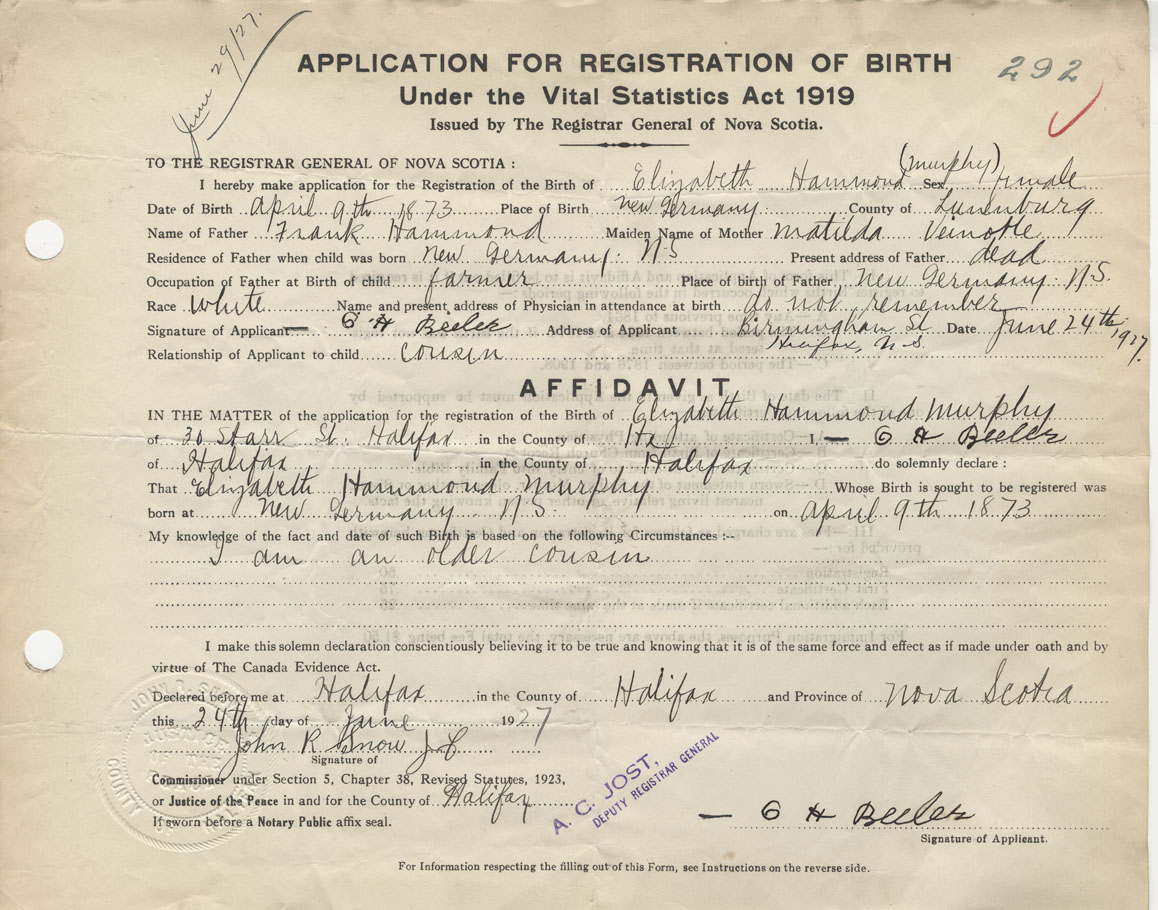 June 29/27.
APPLICATION FOR REGISTRATION OF BIRTH
292
Under the Vital Statistics Act 1919
Issued by The Registrar General of Nova Scotia.
TO THE REGISTRAR GENERAL OF NOVA SCOTIA :
I hereby make application for the Registration of the Birth of Elizabeth Hammond (Murphy) Sex female
Date of Birth April 9th 1873 Place of Birth New Germany County of Lunenburg
Name of Father Frank Hammond Maiden Name of Mother Matilda Veinotte
Residence of Father when child was born New Germany. N.S Present address of Father dead
Occupation of Father at Birth of child farmer Place of birth of Father New Germany N.S.
Race White Name and present address of Physician in attendance at birth do not remember
Signature of Applicant H Beeler Address of Applicant Birmingham St Date June 24th 1927.
Halifax, N.S.
Relationship of Applicant to child cousin
AFFIDAVIT
IN THE MATTER of the application for the registration of the Birth of Elizabeth Hammond Murphy
of 30 Starr St. Halifax in the County of Hx I, H Beeler
of Halifax in the County of Halifax do solemnly declare :
That Elizabeth Hammond Murphy Whose Birth is sought to be registered was
born at New Germany N.S. on April 9th 1873
My knowledge of the fact and date of such Birth is based on the following Circumstances :--
I am an older cousin
I make this solemn declaration conscientiously believing it to be true and knowing that it is of the same force and effect as if made under oath and by
virtue of The Canada Evidence Act.
Declared before me at Halifax in the County of Halifax and Province of Nova Scotia
this 24th day of June 1927
John R Snow J.P.
Signature of
Commissioner under Section 5, Chapter 38, Revised Statutes, 1923,
or Justice of the Peace in and for the County of Halifax
If sworn before a Notary Public affix seal.
A. C. JOST,
DEPUTY REGISTRAR GENERAL
H Beeler
Signature of Applicant.
For Information respecting the filling out of this Form, see Instructions on the reverse side.